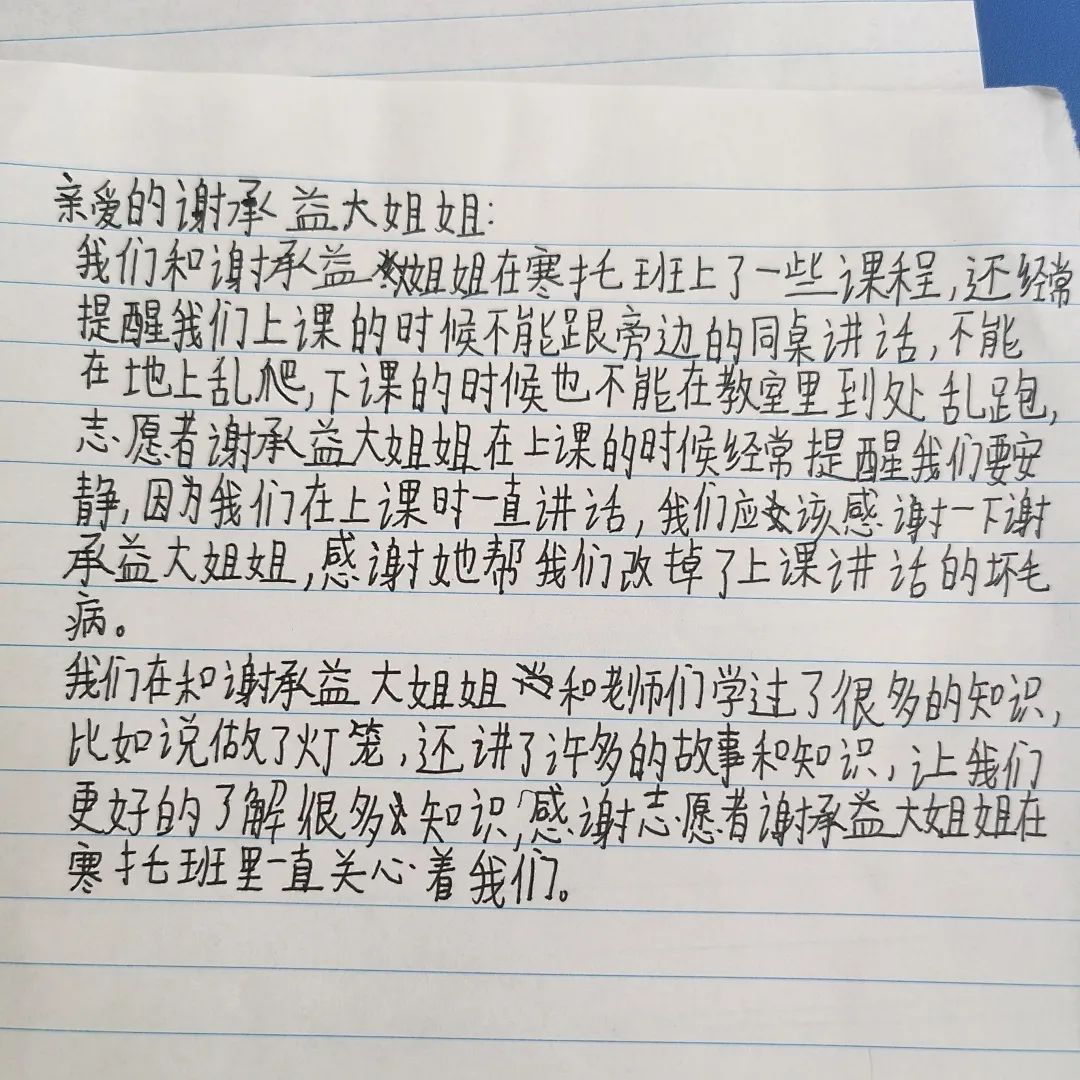 亲爱的谢承益大姐姐:
我们和谢承益姐姐在寒托班上了一些课程,还经常
提醒我们上课的时候不能跟旁边的同桌讲话,不能
在地上乱爬,下课的时候也不能在教室里到处乱跑,
志愿者谢承益大姐姐在上课的时候经常提醒我们要安
静,因为我们在上课时一直讲话,我们应该感谢一下谢
承益大姐姐,感谢她帮我们改掉了上课讲话的坏毛
病。
我们在和谢承益大姐姐和老师们学过了很多的知识,
比如说做了灯笼,还讲了许多的故事和知识,让我们
更好的了解很多知识,感谢志愿者谢承益大姐姐在
寒托班里一直关心着我们。